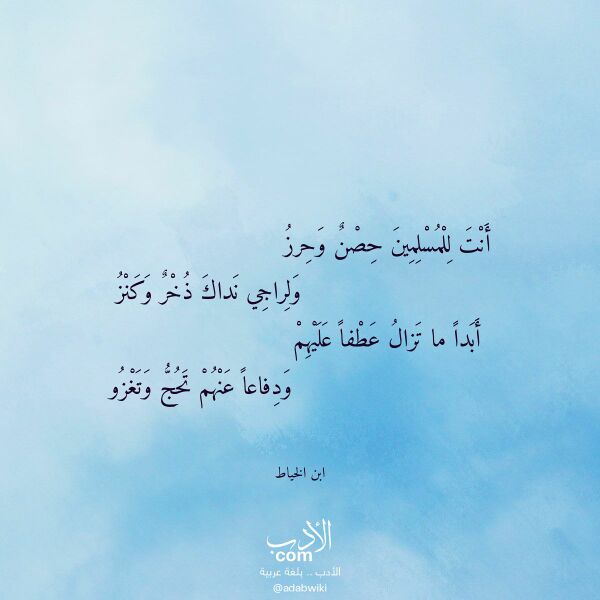 أَنْتَ لِلْمُسْلِمِينَ حِصْنٌ وَحِرزُ
وَلِراجِي نَداكَ ذُخْرٌ وَكَنْزُ
أَبَداً ما تَزالُ عَطْفاً عَلَيْهِمْ
وَدِفاعاً عَنْهُمْ تَحُجُّ وَتَغْزُو
ابن الخياط
الأدب
com
الأدب .. بلغة عربية
@adabwiki